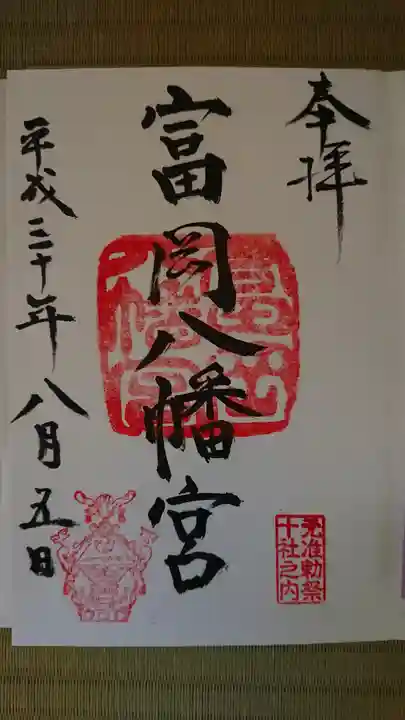 奉拝
富岡八幡宮
平成三十年八月五日
元准勅祭
十社之内